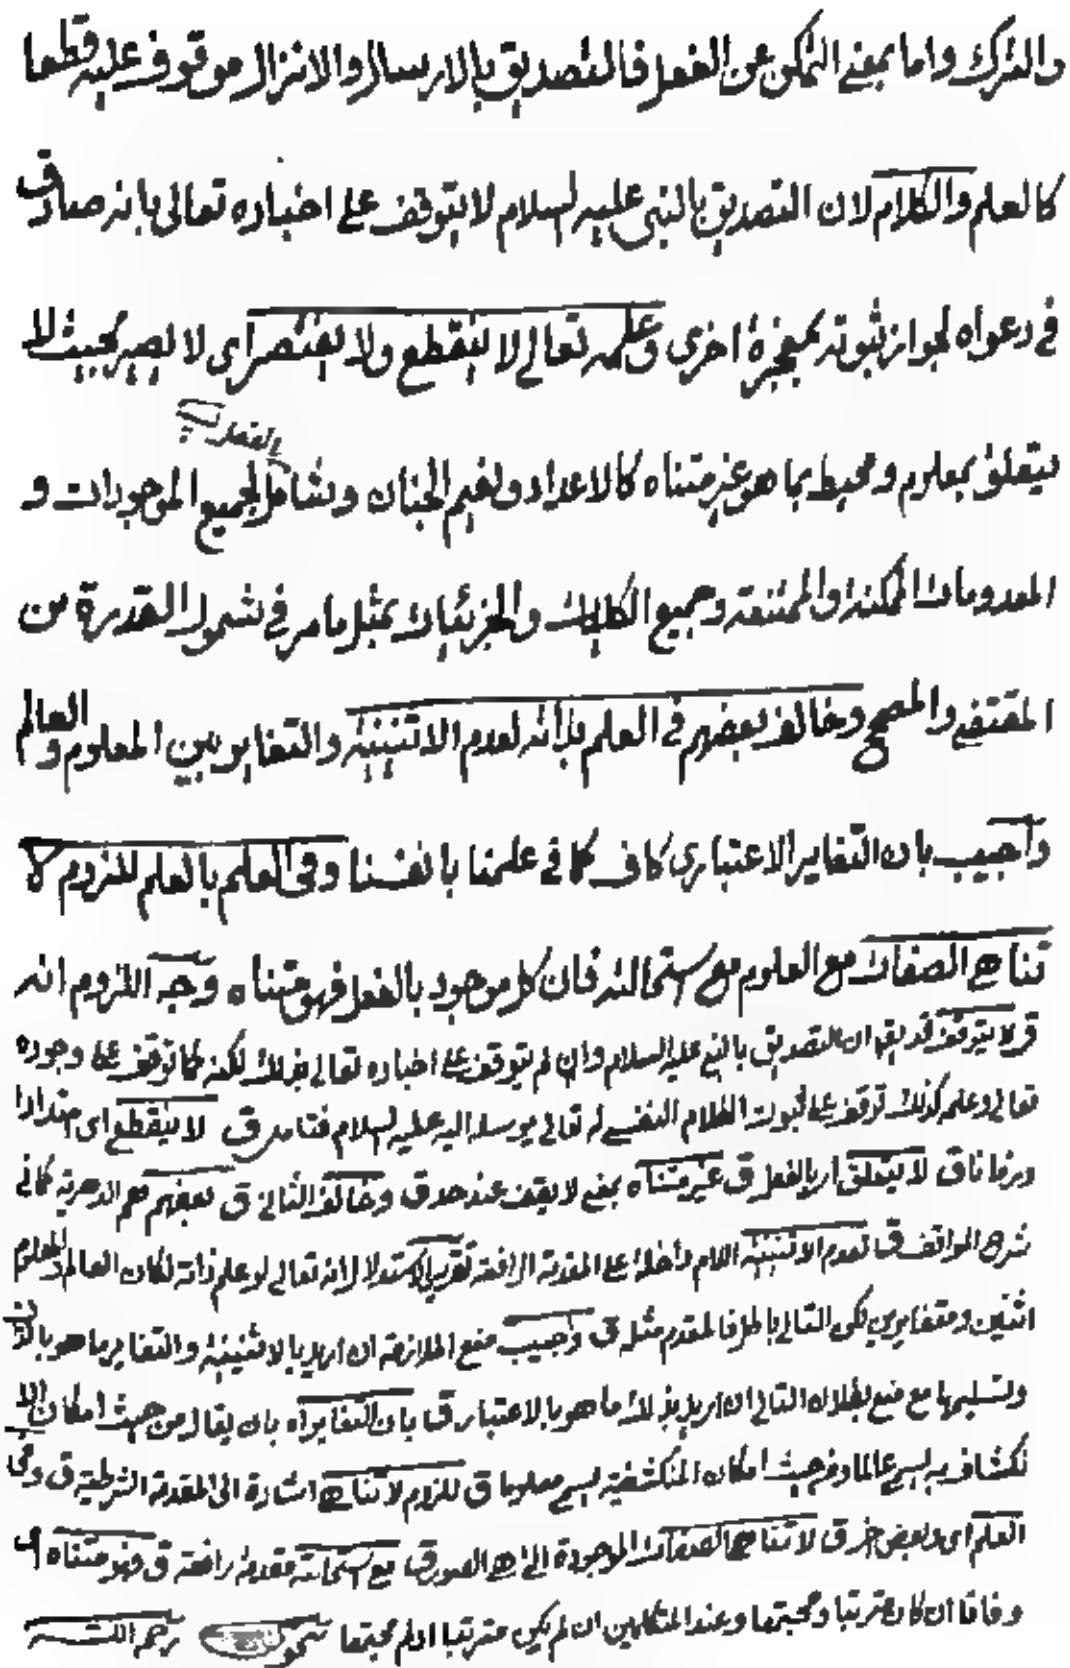 والترك واما بمعنى التمكن عن الفعل فالتصديق بالارسال والانزال موقوف عليه قطعا
كالعلم والكلام لان التصديق بالنبي عليه السلام لا يتوقف على اخباره تعالى بانه صادق
في دعواه لجواز ثبوته بمعجزة اخرى وعلمه تعالى لا ينقطع ولا يقتصر اى لا يصير بحيث لا
بالفعل
يتعلق بمعلوم ومحيط بما هو غير متناه كالاعداد ونعيم الجنان وشامل لجميع الموجودات و
المعدومات الممكنة والممتنعة وجميع الكليات والجزئيات بمثل ما مر في شمول القدرة من
المقتضى والمصحح وخالف بعضهم في العلم بذاته لعدم الاثنينية والتغاير بين المعلوم والعالم
واجيب بان التغاير الاعتبارى كاف كما في علمنا بانفسنا وفي العلم بالعلم للزوم لا
تناهى الصفات مع العلوم مع استحالته فان كل موجود بالفعل فهو متناه وجه اللزوم انه
ق لا يتوقف قد يق ان التصديق بالنبي عليه السلام وان لم يتوقف على اخباره تعالى بذلك لكنه كما توقف على وجوده
تعالى وعلمه كذلك توقف على ثبوت الكلام النفسى له تعالى يرسله اليه عليه السلام فتامل ق لا ينقطع اى امتدادا
وزمانا ق لا يتعلق اى بالفعل ق غير متناه بمعنى لا يقف عند حد ق وخالف الثانى ق بعضهم هم الدهرية كما في
شرح المواقف ق لعدم الاثنينية اللام داخلة على المقدمة الرافعة تقرير الاستدلال انه تعالى لو علم ذاته لكان العالم والمعلوم
اثنين ومتغايرين لكن التالى باطل فالمقدم مثله ق واجيب منع الملازمة ان اريد بالاثنينية والتغاير ما هو بالذات
وتسليمها مع منع بطلان التالى ان اريد بذلك ما هو بالاعتبار ق بان التغاير اه بان يقال من حيث امكان الا
نكشاف به يسمى عالما ومن حيث امكان المنكشفية يسمى معلوما ق للزوم لا تناهى اشارة الى المقدمة الشرطية ق وفي
العلم اى وبعض اخر ق لا تناهى الصفات الموجودة التى هى الصور ق مع استحالته مقدمة رافعة ق فهو متناه اى
وفاقا ان كان مترتبا ومجتمعا وعند المتكلمين ان لم يكن مترتبا او لم مجتمعا رحمه الله